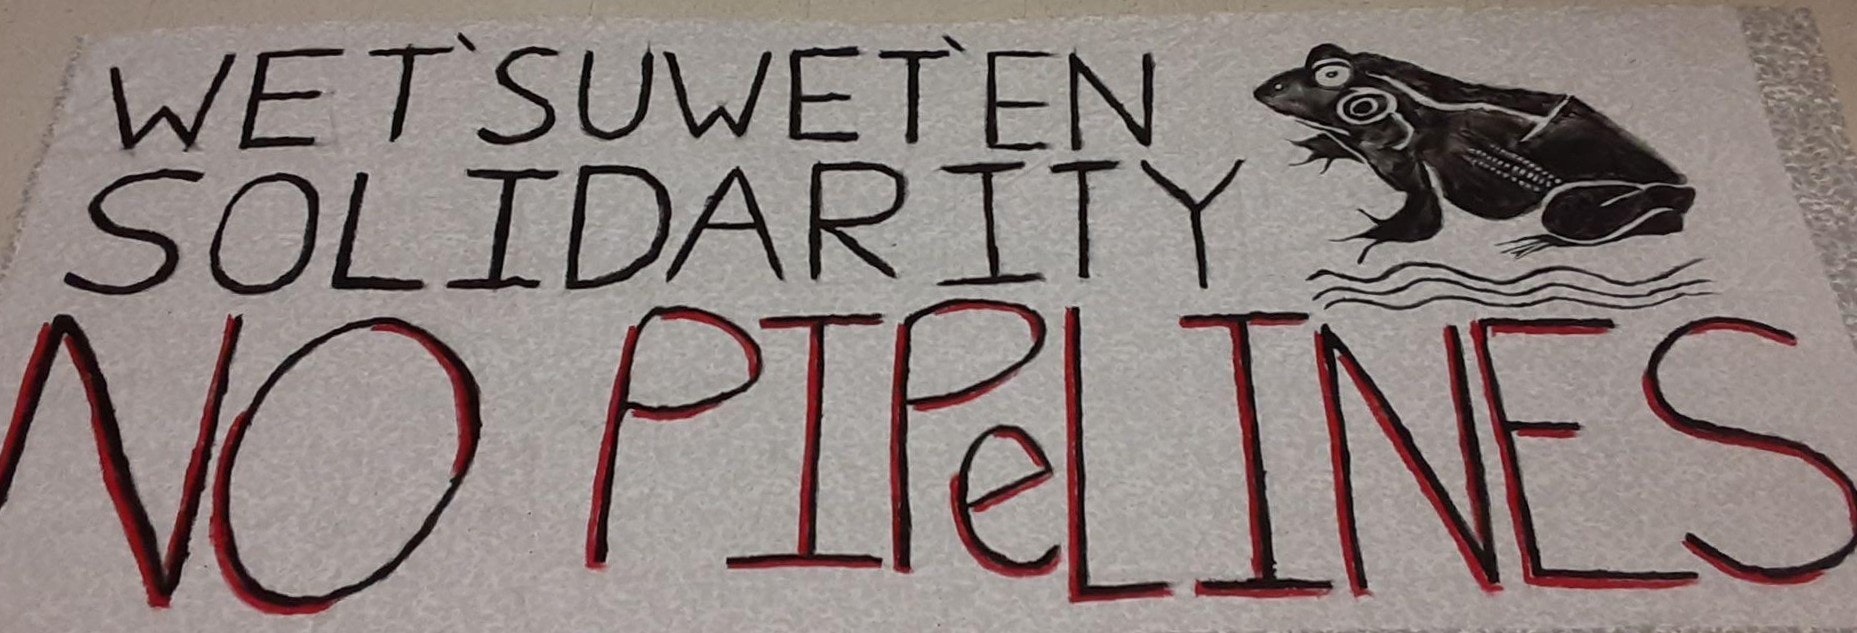 WET'SUWET'EN
SOLIDARITY
NO PIPeLINES